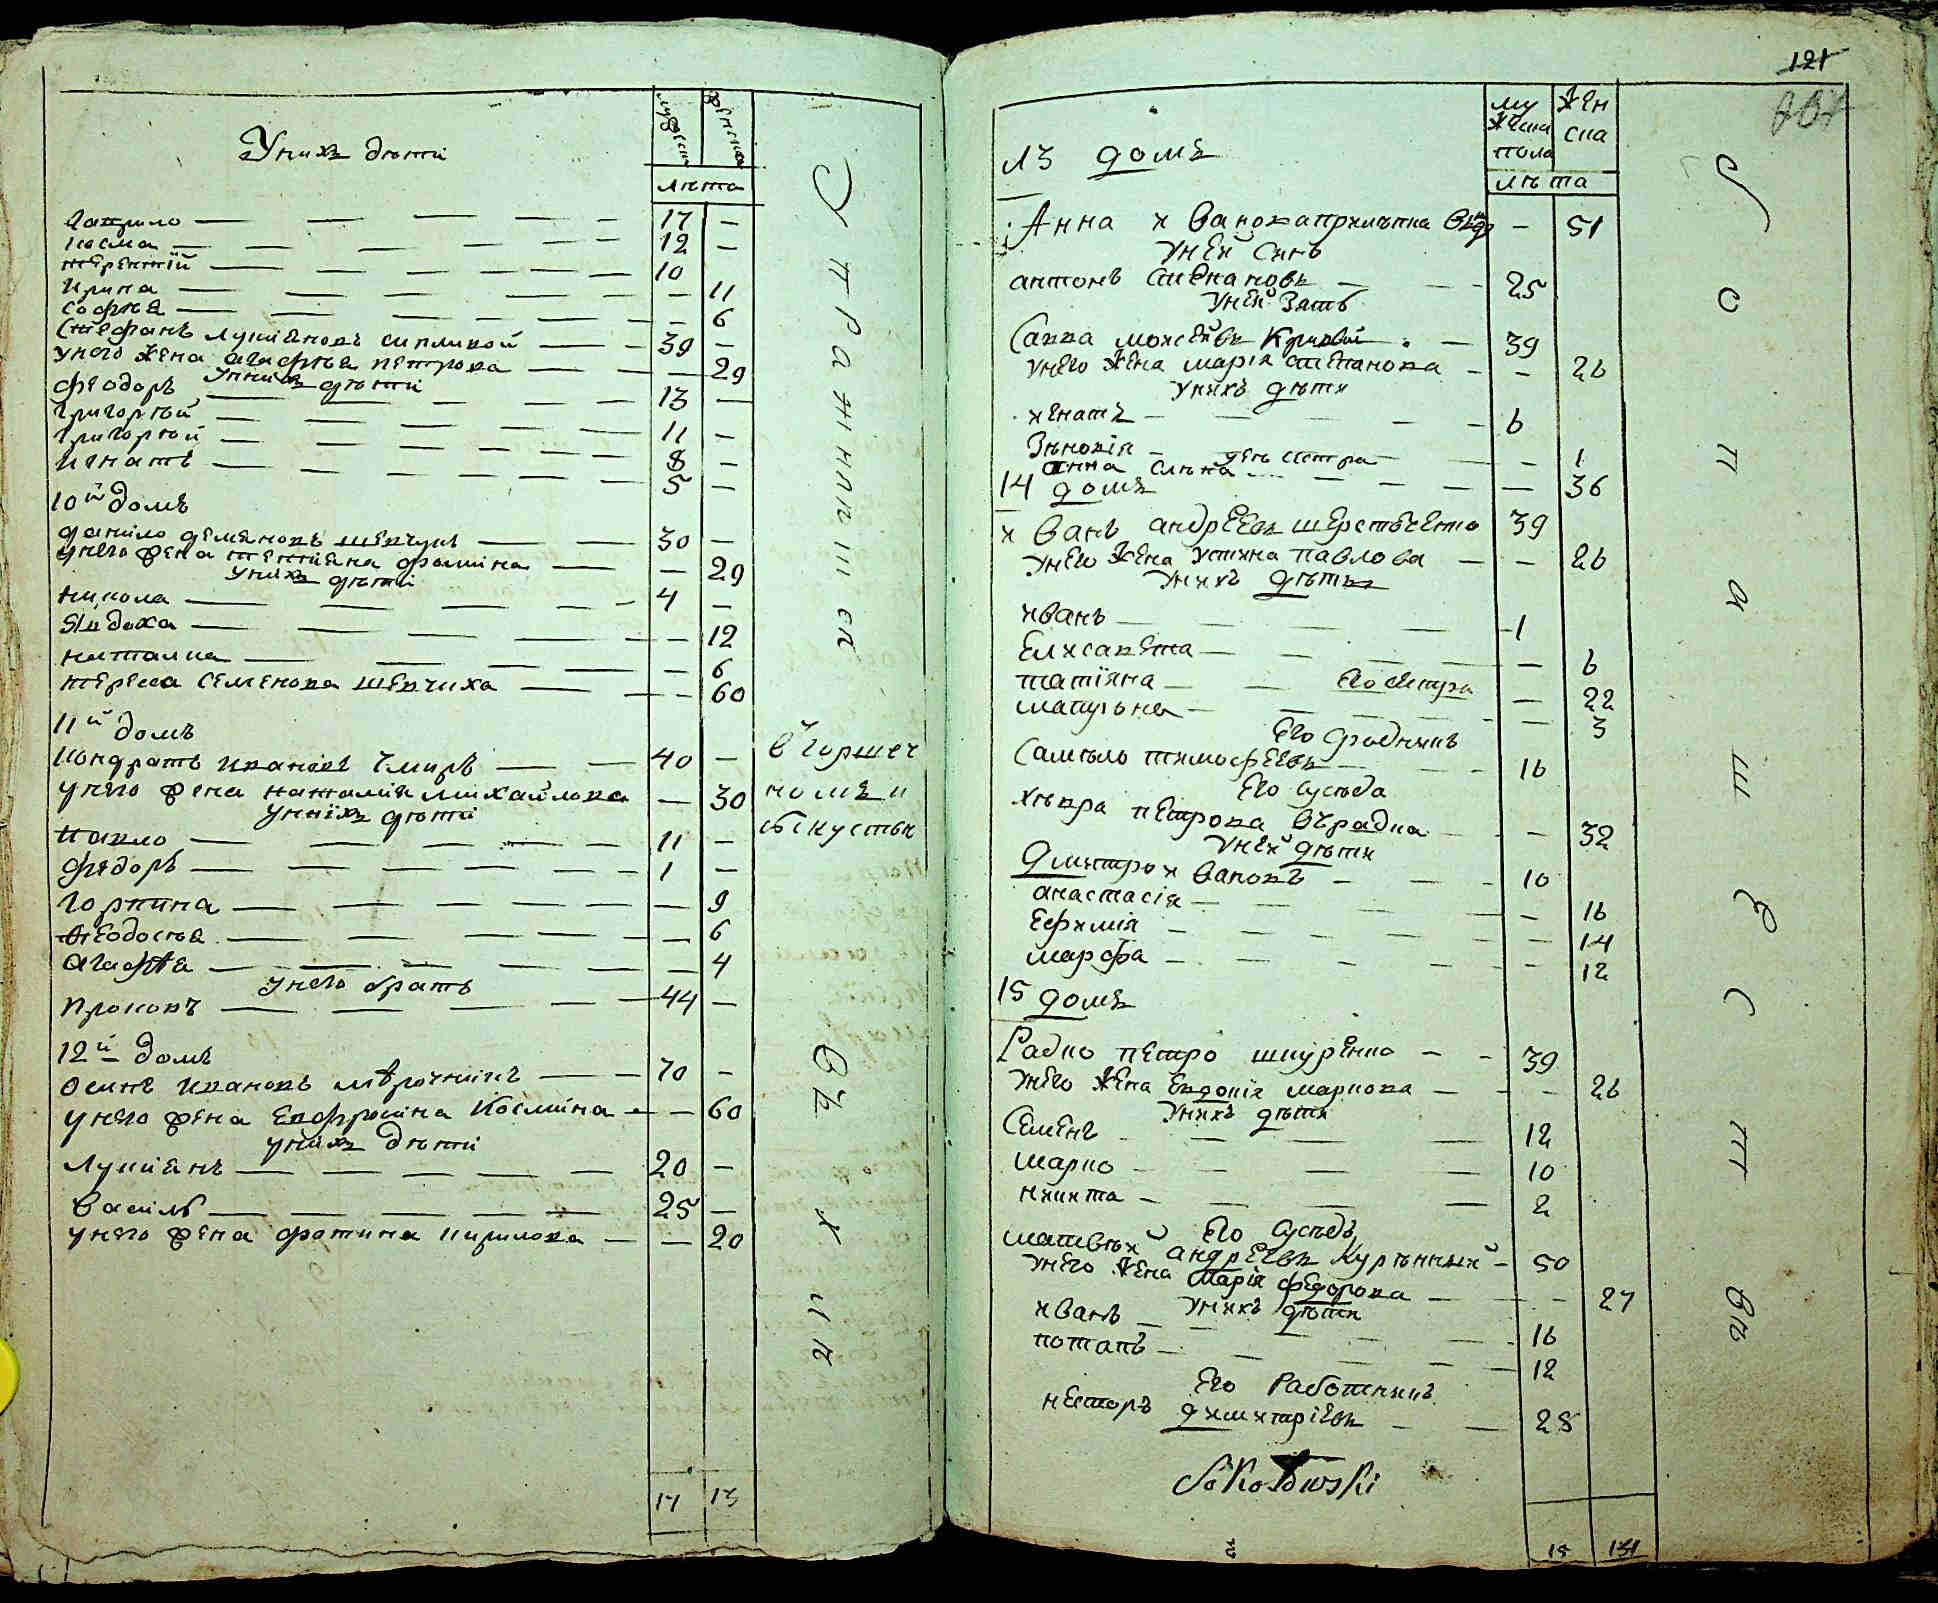 Унихъ дѣти
мужеска
женска
лѣта
Гаврило — 17 —
Косма — 12 —
терентїй — 10
Ирина — — 11
Софїя — — 6
Стефанъ Лукїяновъ — 39 —
унего жена агафїя петрова — — 29
Униихъ дѣти
феодоръ — 13 —
Григорїй — 11 —
Григорїй — 8 —
Игнатъ — 5 —
10й домъ
данїло демяновъ шевчукъ — 30 —
унего жена тетїяна фомина — — 29
Униихъ дѣти
никола — 4 —
Явдоха — — 12
наталка — — 6
тереса Семенова шевчиха — — 60
11й домъ
Кондратъ Ивановъ Чмиръ — 40 —
унего жена наталїя михайлова — 30
Униихъ дѣти
павло — 11 —
федоръ — 1 —
горпина — — 9
феодосїя — — 6
агафїя — — 4
Унего братъ
Прокопъ — 44 —
12й домъ
осипъ Ивановъ мѣрочникъ — 70 —
унего жена Евфросина Космина — — 60
униихъ дѣти
Лукїянъ — 20 —
василь — 25 —
унего жена фотина кирилова — — 20
17 13
Упражняпшся
в горшеч
номъ и
искуствѣ
въ хлп
121
13 домъ
му
жеска
пола
жен
ска
лѣта
Анна Ивановаприлѣпка вдо — 51
Уней синъ
антонъ Степановъ — 25
Уней зать
Савва моисѣйвъ Кривой — 39
унего жена марїя степанова — — 26
Унихъ дѣти
игнатъ — 6
Зѣновїя — — 1
анна — — 36
14 домъ
Иванъ андрѣевъ шерстечето 39
унего жена Устина павлова — — 26
Унихъ дѣти
Иванъ — 1
Елисавета — — 6
татїяна — Его сестра — 22
мотузна — — 3
Его сродникъ
Самъло тимофѣевъ — 16
Его сусѣда
хѣвра петрова — — 32
Уней дѣти
дмитро Ивановъ — 10
анастасїя — — 16
Ефимїя — — 14
марфа — — 12
15 домъ
Радко петро шкуренко — 39
унего жена Евдокїя маркова — — 26
Унихъ дѣти
Семенъ — 12
марко — 10
никита — 2
Его сусѣдъ
матвѣй андрѣевъ Курѣнный — 50
унего жена марїя федорова — — 27
Унихъ дѣти
Иванъ — 16
потапъ — 12
Его Работникъ
несторъ димитрїевъ — 28
Sokołowski
18 131